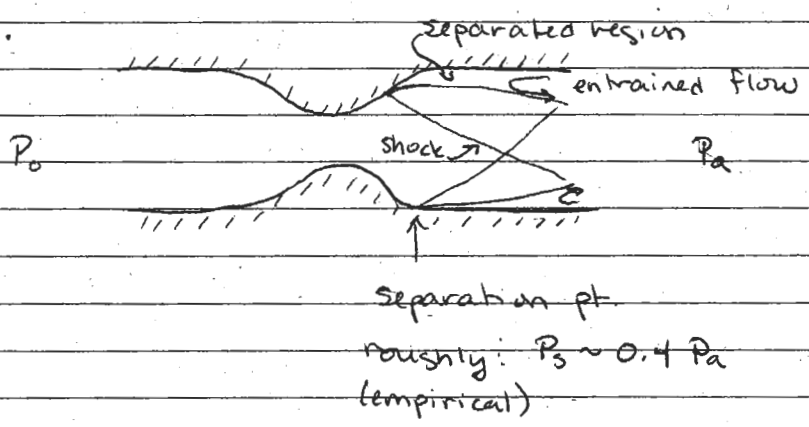 separated region
entrained flow
P₀
shock
Pa
separation pt.
roughly: Ps ~ 0.4 Pa
(empirical)